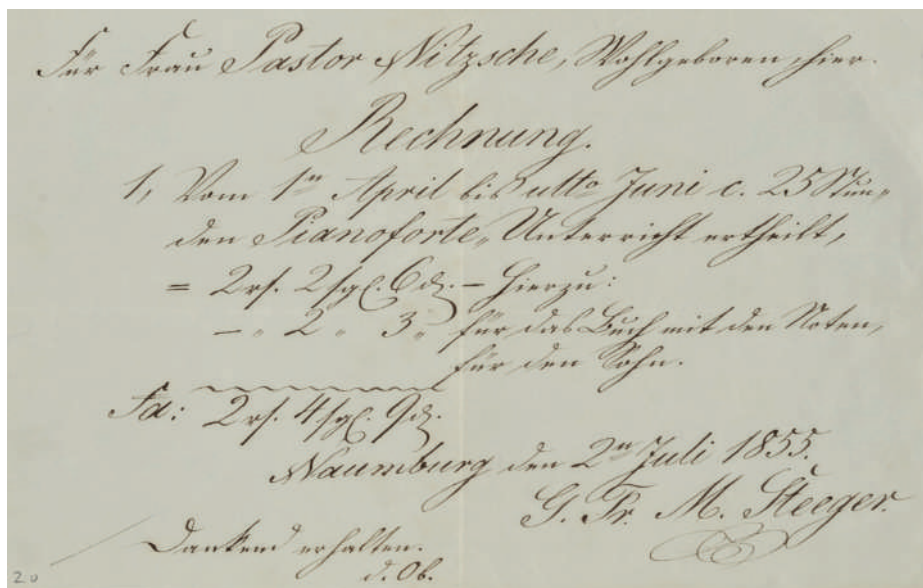 Für Frau Pastor Nitzsche, Wohlgeboren, hier.
Rechnung.
1, Vom 1ten April bis ulto Juni c. 25 Stun„
den Pianoforte„Unterricht ertheilt,
= 2 rf. 2 sgl. 6 dl. – Hierzu:
– „ 2 „ 3 „ für das Buch mit den Noten,
für den Sohn.
Sa: 2 rf. 4 sgl. 9 dl.
Naumburg den 2n Juli 1855.
G. Fr. M. Steeger.
Dankend erhalten.
d. Ob.
20